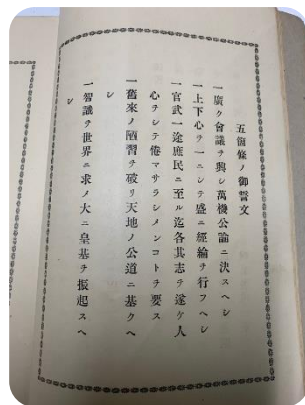 五箇條ノ御誓文
一廣ク會議ヲ興シ萬機公論ニ決スヘシ
一上下心ヲ一ニシテ盛ニ經綸ヲ行フヘシ
一官武一途庶民ニ至ル迄各其志ヲ遂ケ人
心ヲシテ倦マサラシメンコトヲ要ス
一舊來ノ陋習ヲ破リ天地ノ公道ニ基クヘ
シ
一智識ヲ世界ニ求メ大ニ皇基ヲ振起スヘ
シ